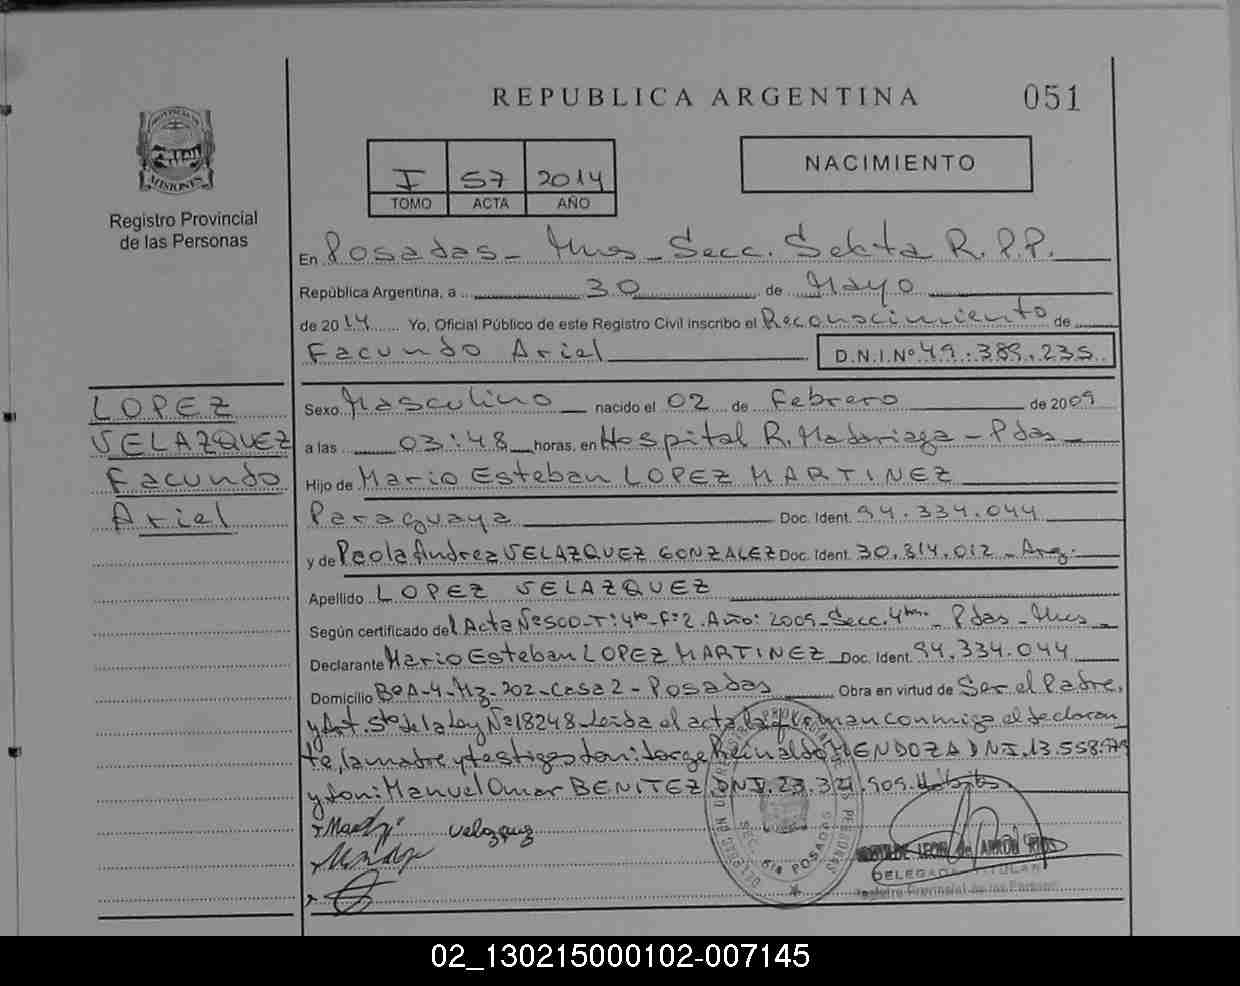 REPUBLICA ARGENTINA
051
PROVINCIA DE
MISIONES
Registro Provincial
de las Personas
I 57 2014
TOMO ACTA AÑO
NACIMIENTO
En Posadas - Mnes - Secc. Sexta R.P.P.
República Argentina, a 30 de Mayo
de 2014 Yo, Oficial Público de este Registro Civil inscribo el Reconocimiento de
Facundo Ariel D.N.I.Nº 49.389.235
LOPEZ
VELAZQUEZ
Facundo
Ariel
Sexo Masculino nacido el 02 de Febrero de 2009
a las 03:48 horas, en Hospital R. Madariaga - Pdas -
Hijo de Mario Esteban LOPEZ MARTINEZ
Paraguaya Doc. Ident. 94.334.044
y de Paola Andrea VELAZQUEZ GONZALEZ Doc. Ident. 30.814.012 - Arg.
Apellido LOPEZ VELAZQUEZ
Según certificado del Acta Nº 500 - T: 4to - F: 2. Año: 2009 - Secc. 4ta - Pdas - Mnes -
Declarante Mario Esteban LOPEZ MARTINEZ Doc. Ident. 94.334.044
Domicilio Bº A-4 - Mz. 202 - Casa 2 - Posadas Obra en virtud de Ser el Padre,
y Art. 5to de la Ley Nº 18248 - Leída el acta la firman conmigo el declaran
te, la madre y testigos don: Jorge Reinaldo MENDOZA DNI. 13.558.
y don: Manuel Omar BENITEZ DNI. 23.321.909.
Velazquez
SEC. 6ta POSADAS
DELEGADA TITULAR
Registro Provincial de las Personas
02_130215000102-007145